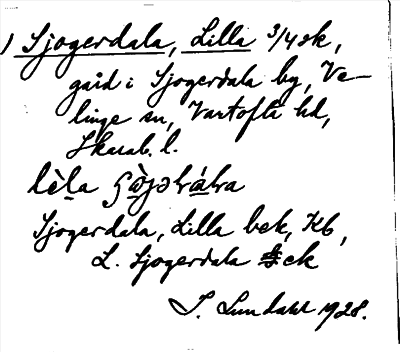 ) Sjogerdala, Lilla 3/4 sk,
gård i Sjogerdala by, Ve-
linge sn, Vartofta hd,
Skarab. l.
Sjogerdala, Lilla bek, Kb,
L. Sjogerdala ek
S. Lundahl 1928.